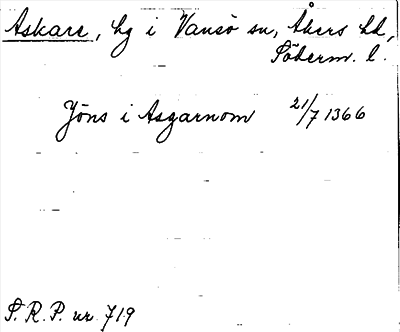 Askare, hg i Vansö sn, Åkers hd,
Söderm. l.
Jöns i Asgarnom 21/7 1366
S.R.P. nr 719